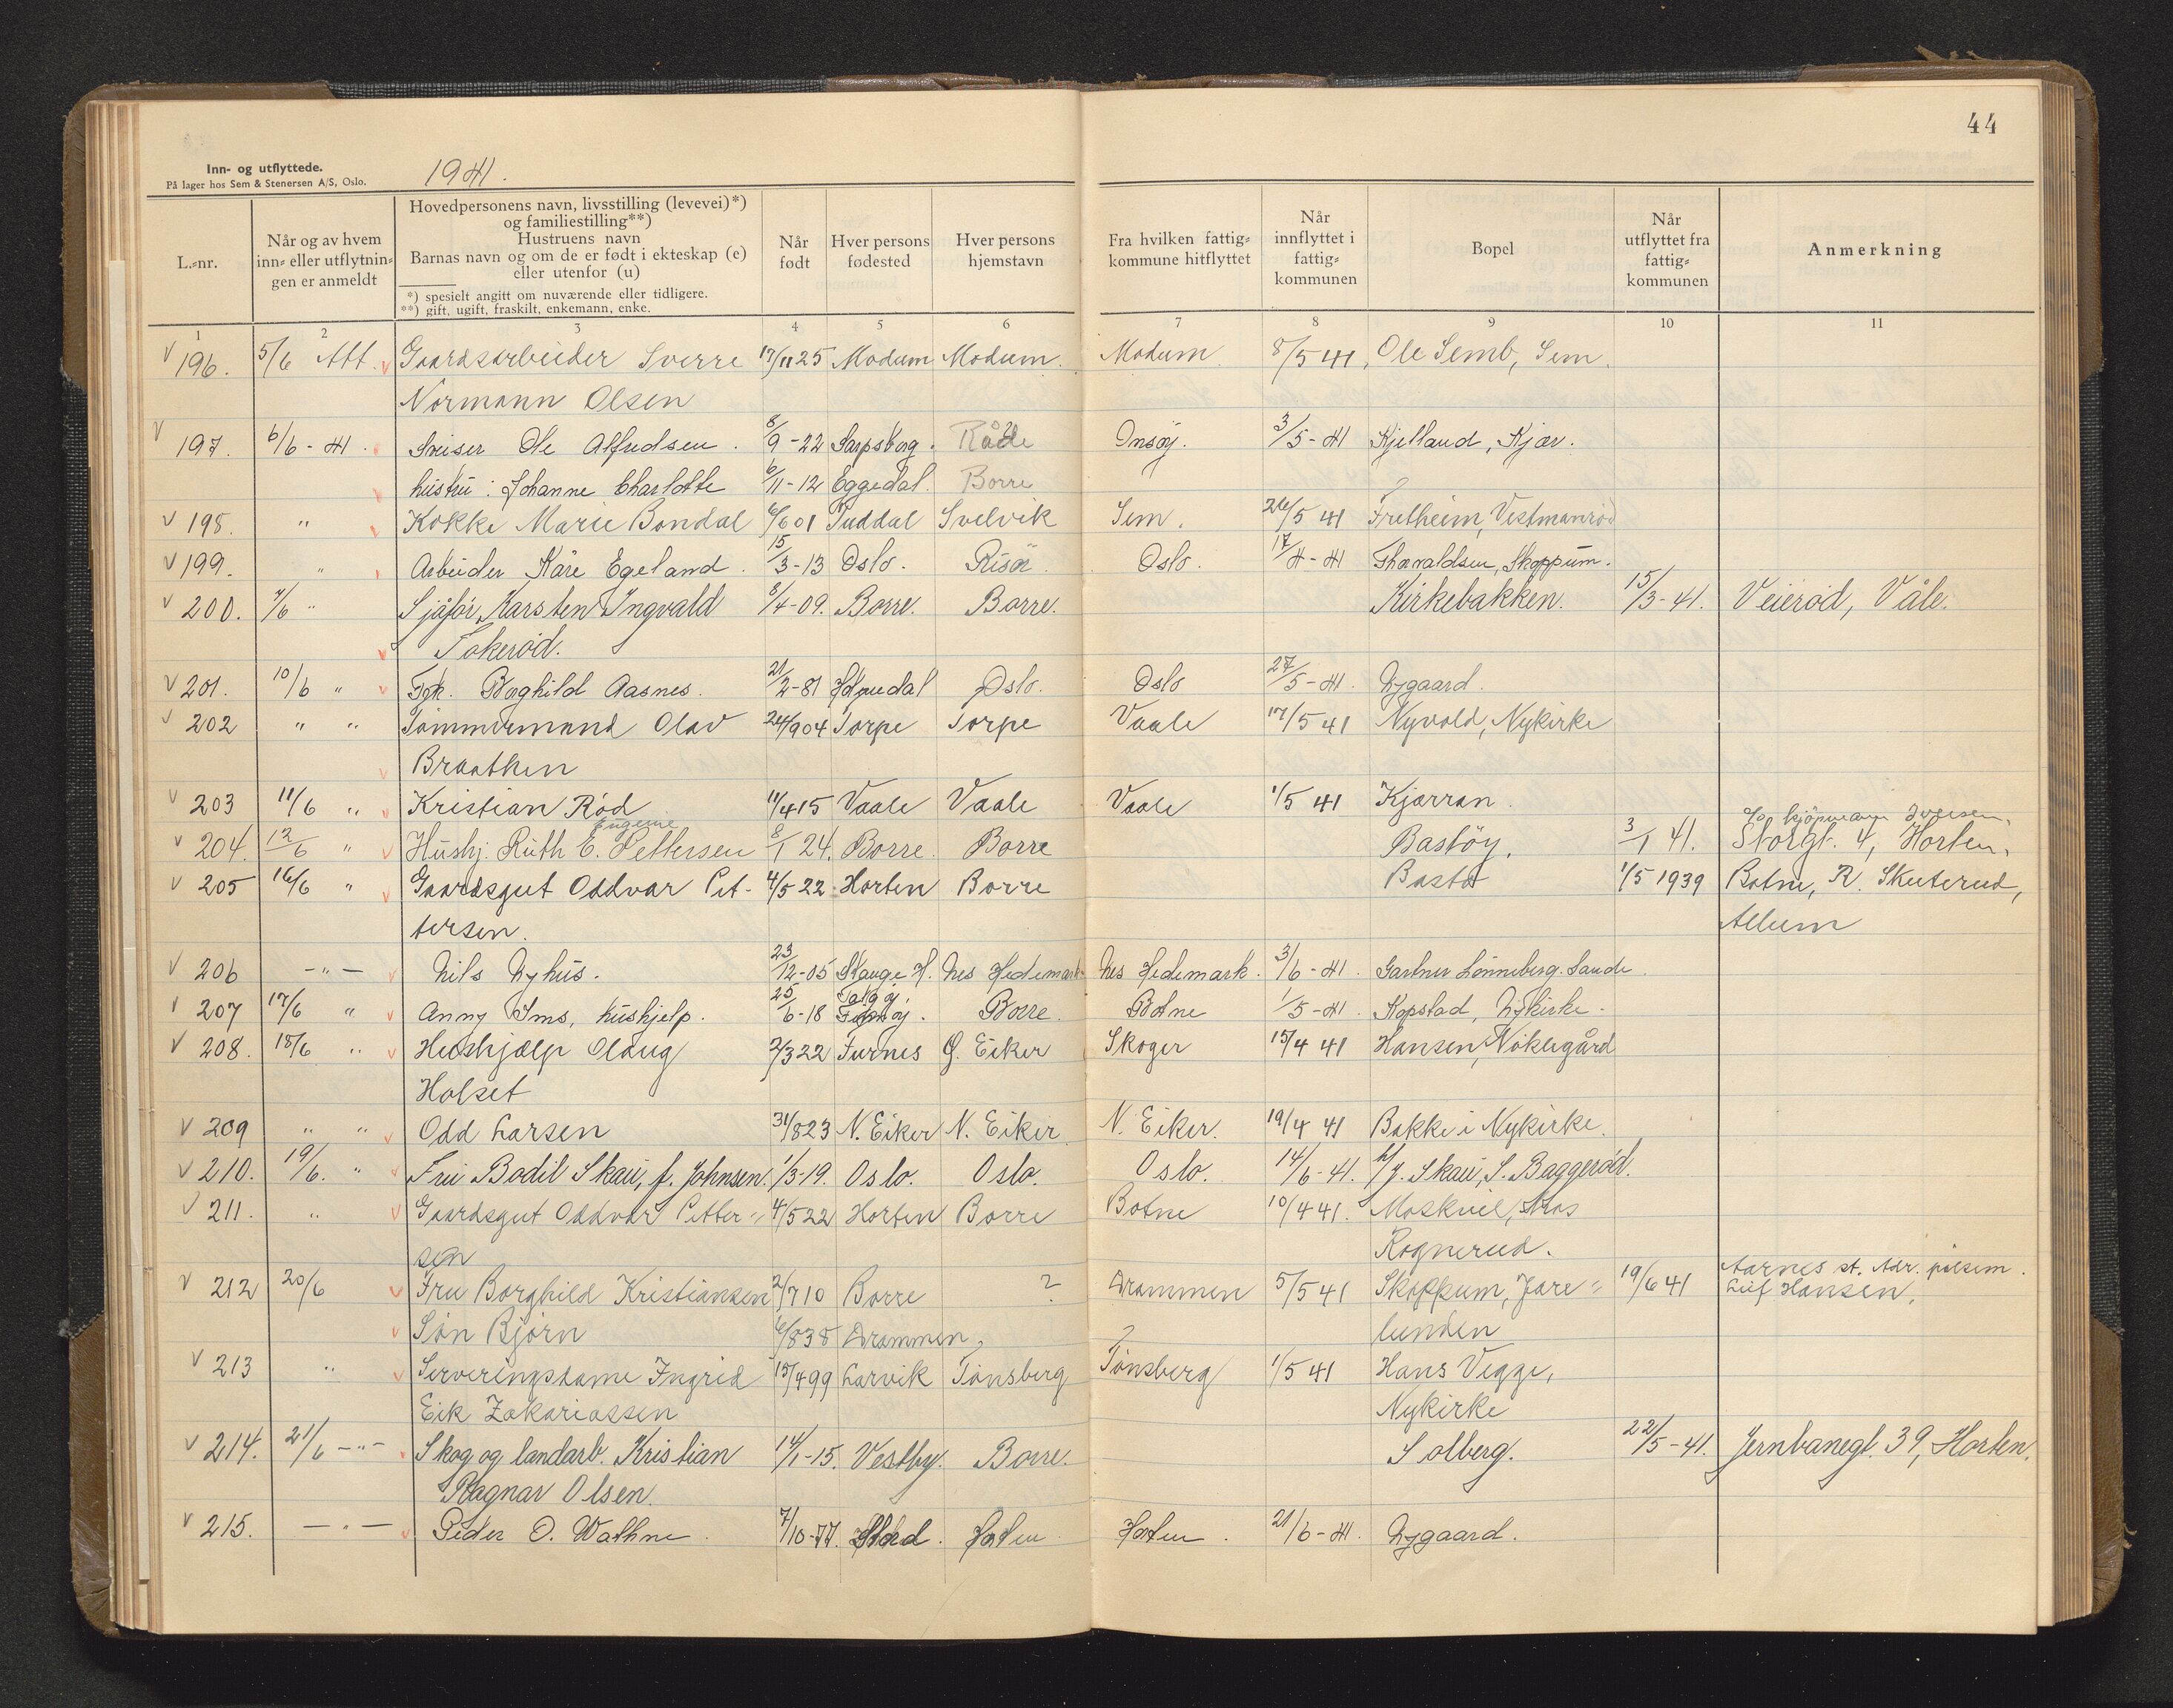 44
Inn- og utflyttede.
På lager hos Sem & Stenersen A/S, Oslo.
1941.
L.-nr.
Når og av hvem inn- eller utflytningen er anmeldt
Hovedpersonens navn, livsstilling (levevei)*)
og familiestilling**)
Hustruens navn
Barnas navn og om de er født i ekteskap (e)
eller utenfor (u)
*) spesielt angitt om nuværende eller tidligere.
**) gift, ugift, fraskilt, enkemann, enke.
Når født
Hver persons fødested
Hver persons hjemstavn
Fra hvilken fattig-kommune hitflyttet
Når innflyttet i fattig-kommunen
Bopel
Når utflyttet fra fattig-kommunen
Anmerkning
1 2 3 4 5 6 7 8 9 10 11
V 196. 5/6 Att. Gaardsarbeider Sverre 17/11 25 Modum Modum. Modum 8/5 41. Ole Semb, Sem.
Normann Olsen
V 197. 6/6 - 41. Sveiser Ole Alfredsen. 8/9 - 22 Sarpsborg. Råde Onsøy. 3/5 - 41 Kjelland, Kjær.
hustru: Johanne Charlotte 6/11 - 12 Eggedal. Borre
V 198. " Kokke Marie Bondal 6/6 01 Tuddal Svelvik Sem. 26/5 41 Fretheim, Vestmanrød
V 199. " Arbeider Kåre Egeland. 15/3 - 13 Oslo. Risør. Oslo. 17/4 - 41 Thorvaldsen, Skoppum.
V 200. 7/6 " Sjåfør, Karsten Ingvald 8/4 - 09. Borre. Borre. Kirkebakken. 15/3 - 41. Veierød, Våle.
Tokerød.
V 201. 10/6 " Frk. Borghild Aasnes. 21/2 - 81 Oslo. Oslo 27/5 - 41. Nygaard.
V 202 " " Tømmermand Olav 24/9 04 Torpe Torpe Vaale 17/5 41 Nyvold, Nykirke
Braathen
V 203 11/6 " Kristian Rød 11/4 15 Vaale Vaale Vaale 1/5 41 Kjærran.
Eugenie c/o kjøpmann Iversen,
V 204. 12/6 " Hushj. Ruth E. Pettersen 8/1 24. Borre. Borre Bastøy. 3/1 41. Storgt. 4, Horten.
V 205 16/6 " Gaardsgut Oddvar Pet- 4/5 22 Horten Borre Bastø 1/5 1939 Botne, R. Skuterud,
tersen. Allum
V 206 - " - Nils Nyhus. 23/12 - 05 Stange H. Nes Hedemark Nes Hedemark. 3/6 - 41. Gartner Lønneberg. Sande
V 207 17/6 " Anny Ims, hushjelp. 25/6 - 18 Borre. Botne 1/5 - 41. Kopstad, Nykirke.
V 208. 18/6 " Hushjælp Olaug 2/3 22 Furnes Ø. Eiker Skoger 15/4 41 Hansen, Nøklegård
Holset
V 209 " " Odd Larsen 31/8 23 N. Eiker N. Eiker N. Eiker. 19/4 41 Bakke i Nykirke.
V 210. 19/6. " Fru Bodil Skau, f. Johnsen. 1/3 - 19. Oslo. Oslo. Oslo. 14/6 - 41. J. Skau, S. Baggerød.
V 211. " Gaardsgut Oddvar Petter- 4/5 22 Horten Borre Botne 10/4 41. Moskvil, hos
sen Rognerud.
V 212 20/6 Fru Borghild Kristiansen 2/7 10 Borre ? Drammen 5/5 41 Skoppum, Jare- 19/6 41 Aarnes st. Adr. pølsem.
Leif Hansen.
Søn Bjørn 6/8 38 Drammen, lunden
V 213 " Serveringsdame Ingrid 15/4 99 Larvik Tønsberg Tønsberg 1/5 41 Hans Vegge,
Eik Zakariassen Nykirke
V 214. 21/6 - " - Skog og landarb. Kristian 14/1 - 15. Vestby. Borre. Solberg. 22/5 - 41. Jernbanegt. 39, Horten.
Ragnar Olsen.
V 215. - " - Peder O. Wathne. 7/10 - 77. Stord. Horten Horten. 21/6 - 41. Nygaard.